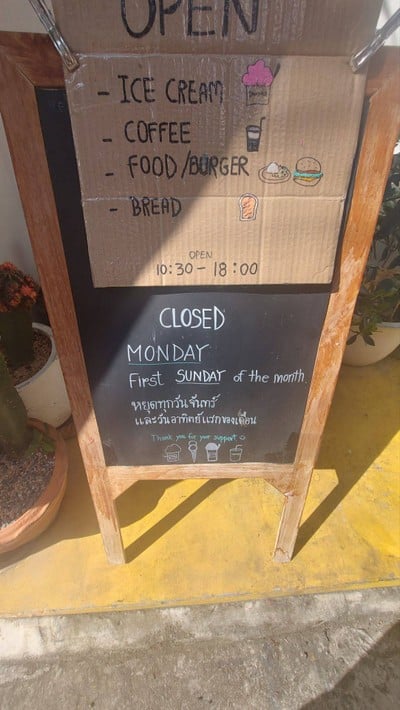 OPEN
- ICE CREAM
- COFFEE
- FOOD/BURGER
- BREAD
OPEN
10:30 - 18:00
CLOSED
MONDAY
First SUNDAY of the month
หยุดทุกวันจันทร์
และวันอาทิตย์แรกของเดือน
Thank you for your support